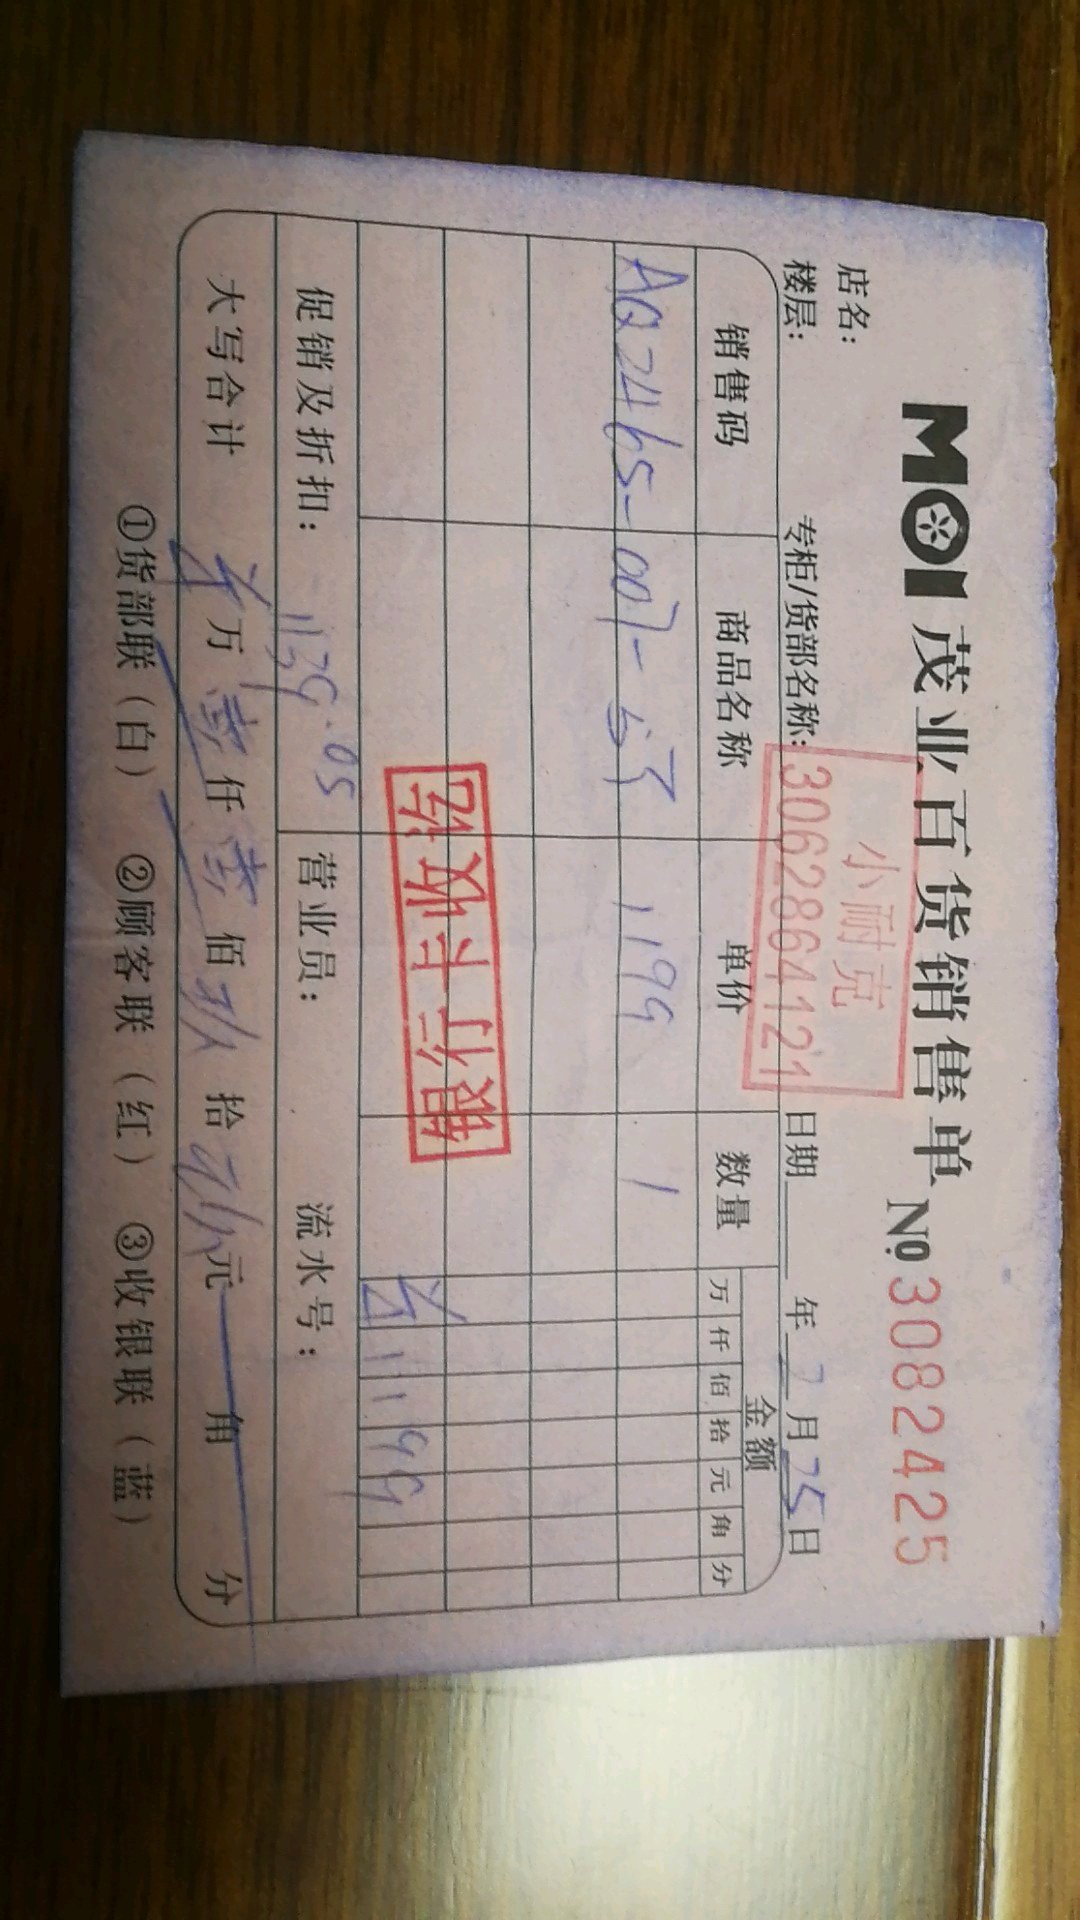 MOI 茂业百货销售单 № 3082425
店名:
小耐克
楼层: 专柜/货部名称: 30628641121 日期 年 7 月 25 日
销售码 商品名称 单价 数量 金额
万 仟 佰 拾 元 角 分
AQ2465-007- 1199 1
银行卡收讫
¥ 1 1 9 9
促销及折扣: 1139.05 营业员: 流水号:
大写合计 万 壹 仟 壹 佰 玖 拾 玖 元 角 分
①货部联（白） ②顾客联（红） ③收银联（蓝）